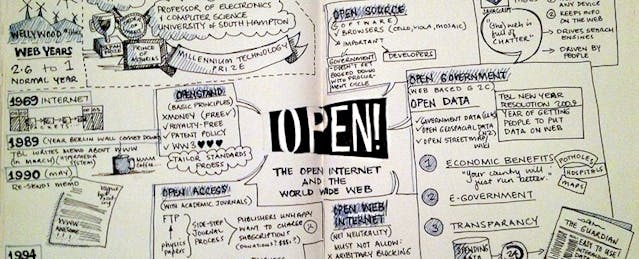 WELLYWOOD
WEB YEARS
2.6 TO 1
NORMAL YEAR
PROFESSOR OF ELECTRONICS
& COMPUTER SCIENCE
UNIVERSITY OF SOUTH HAMPTON
PRINCE
OF
ASTURIAS
MILLENNIUM TECHNOLOGY
PRIZE
1969 INTERNET
PACKETS
1989 (YEAR BERLIN WALL COMES DOWN)
TBL WRITES MEMO ABOUT
(in MARCH)
SYSTEM)
COFFEE
1990 (MAY)
RE-SENDS MEMO
WWW
AWESOME
1994
OPENSTAND
(BASIC PRINCIPLES)
XMONEY (FREEV)
✓ROYALTY-FREE
✓PATENT POLICY
✓WW3 ♥♥♥
TAILOR STANDARDS
PROCESS
OPEN ACCESS
(WITH ACADEMIC JOURNALS)
FTP
physics
Papers
SIDE-STEP
JOURNAL
PROCESS
PUBLISHERS UNHAPPY
WANT TO CHARGE
SUBSCRIPTIONS
(DONATIONS? $$$?)
OPEN!
THE OPEN INTERNET
AND THE
WORLD WIDE WEB
OPEN SOURCE
(SOFTWARE)
✓BROWSERS (CELLO, VIOLA, MOSAIC)
* IMPORTANT
GOVERNMENT
DOESN'T GET
BOGGED DOWN
WITH PROCUREMENT
CYCLE
DEVELOPERS
OPEN GOVERNMENT
(WEB BASED G 2C)
OPEN DATA
✓GOVERNMENT DATA
✓OPEN GEOSPATIAL DATA
✓OPEN STREETMAP
TBL NEW YEAR
RESOLUTION 2009
YEAR OF GETTING
PEOPLE TO PUT
DATA ON WEB
1 ECONOMIC BENEFITS
"Your country will
just run better."
POTHOLES
HOSPITALS
MAPS
2 E-GOVERNMENT
3 TRANSPARENCY
SPENDING
DATA
OPEN WEB
INTERNET
(NET NEUTRALITY)
MUST NOT ALLOW:
X ARBITRARY BLOCKING
JAVASCRIPT
"the web is
full of
CHATTER"
ANY DEVICE
2 KEEPS INFO
ON THE WEB
→ DRIVES SEARCH
ENGINES
→ DRIVEN BY
PEOPLE
THE GUARDIAN
EASY TO USE!